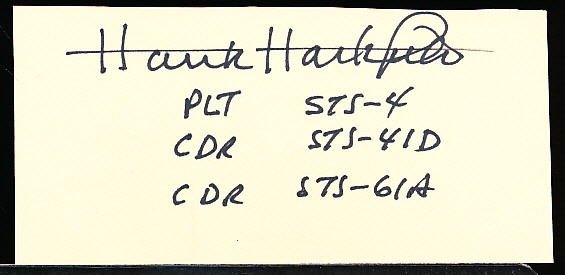 Hank Hartsfield
PLT STS-4
CDR STS-41D
CDR STS-61A